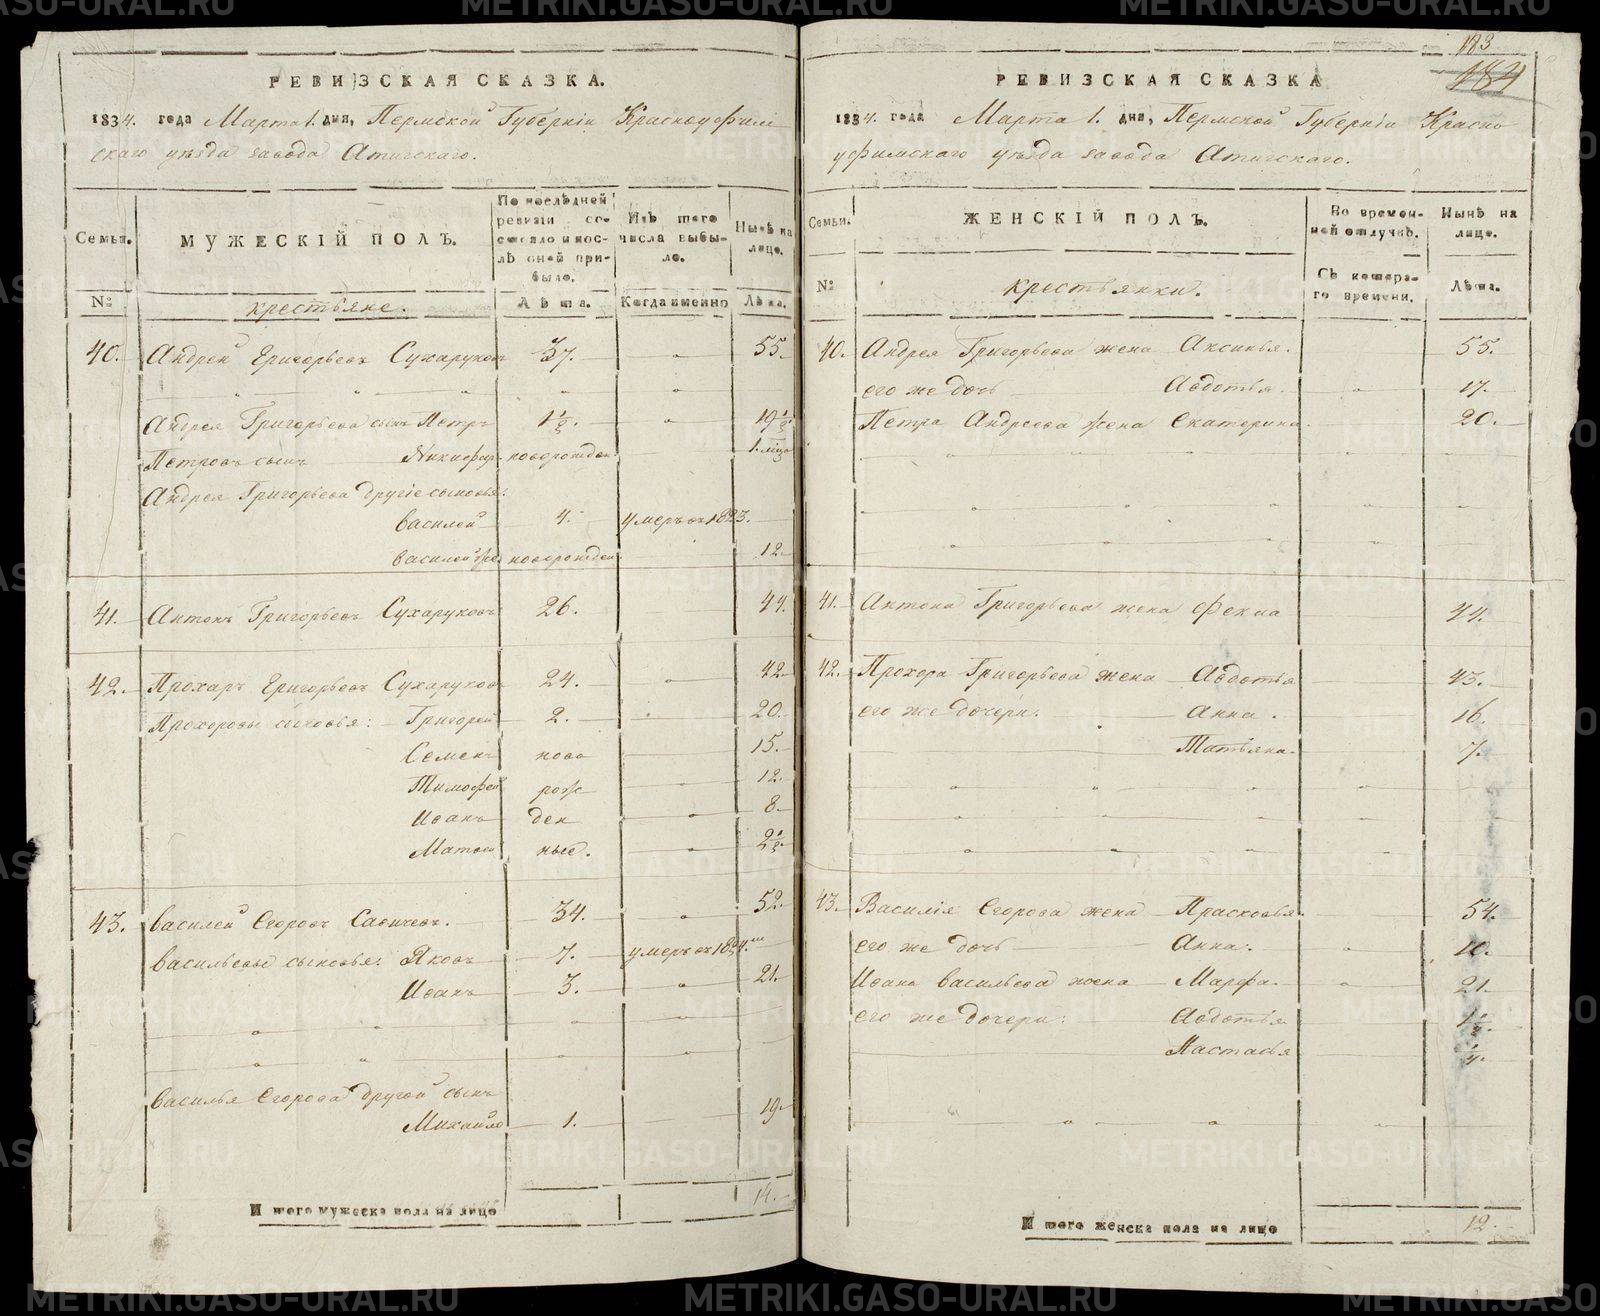 РЕВИЗСКАЯ СКАЗКА.
1834. года Марта 1. дня, Пермской Губерніи Красноуфим
скаго уѣзда завода Атигскаго.
Семьи.
МУЖЕСКІЙ ПОЛЪ.
По послѣдней ревизіи состояло и послѣ оной прибыло.
Изъ того числа выбыло.
Нынѣ на лицо.
№
крестьяне.
Лѣта.
Когда именно
Лѣта.
40. Андрей Григорьевъ Сухаруковъ 37. 55.
Андрея Григорьева сынъ Петръ 1½. 19½.
Петровъ сынъ Никифоръ новорожден.
Андрея Григорьева другіе сыновья:
Василей 4. умеръ въ 1823.
Василей же новорожден. 12.
41. Антонъ Григорьевъ Сухаруковъ 26. 44.
42. Прохаръ Григорьевъ Сухаруковъ 24. 42.
Прохоровы сыновья: Григорей 2. 20.
Семенъ ново 15.
Тимофей рож 12.
Иванъ ден 8.
Матвей ные. 2½.
43. Василей Егоровъ Савичевъ. 34. 52.
Васильевы сыновья: Яковъ 7. умеръ въ
Иванъ 3. 21.
Василья Егорова другой сынъ
Михайло 1. 19.
Итого мужеска пола на лицо 14.
183
184
РЕВИЗСКАЯ СКАЗКА
1834. года Марта 1. дня, Пермской Губерніи Красно
уфимскаго уѣзда завода Атигскаго.
Семьи.
ЖЕНСКІЙ ПОЛЪ.
Во временной отлучкѣ.
Нынѣ на лицо.
№
крестьянки.
Съ котораго времени.
Лѣта.
40. Андрея Григорьева жена Аксинья. 55.
его же дочь Авдотья. 17.
Петра Андреева жена Екатерина. 20.
41. Антона Григорьева жена Фекла 44.
42. Прохора Григорьева жена Авдотья 43.
его же дочери: Анна. 16.
Татьяна. 7.
43. Василія Егорова жена Прасковья. 54.
его же дочь Анна.
Ивана Васильева жена Марфа. 21.
его же дочери: Авдотья 1½.
Настасья ¼.
Итого женска пола на лицо 12.
METRIKI.GASO-URAL.RU